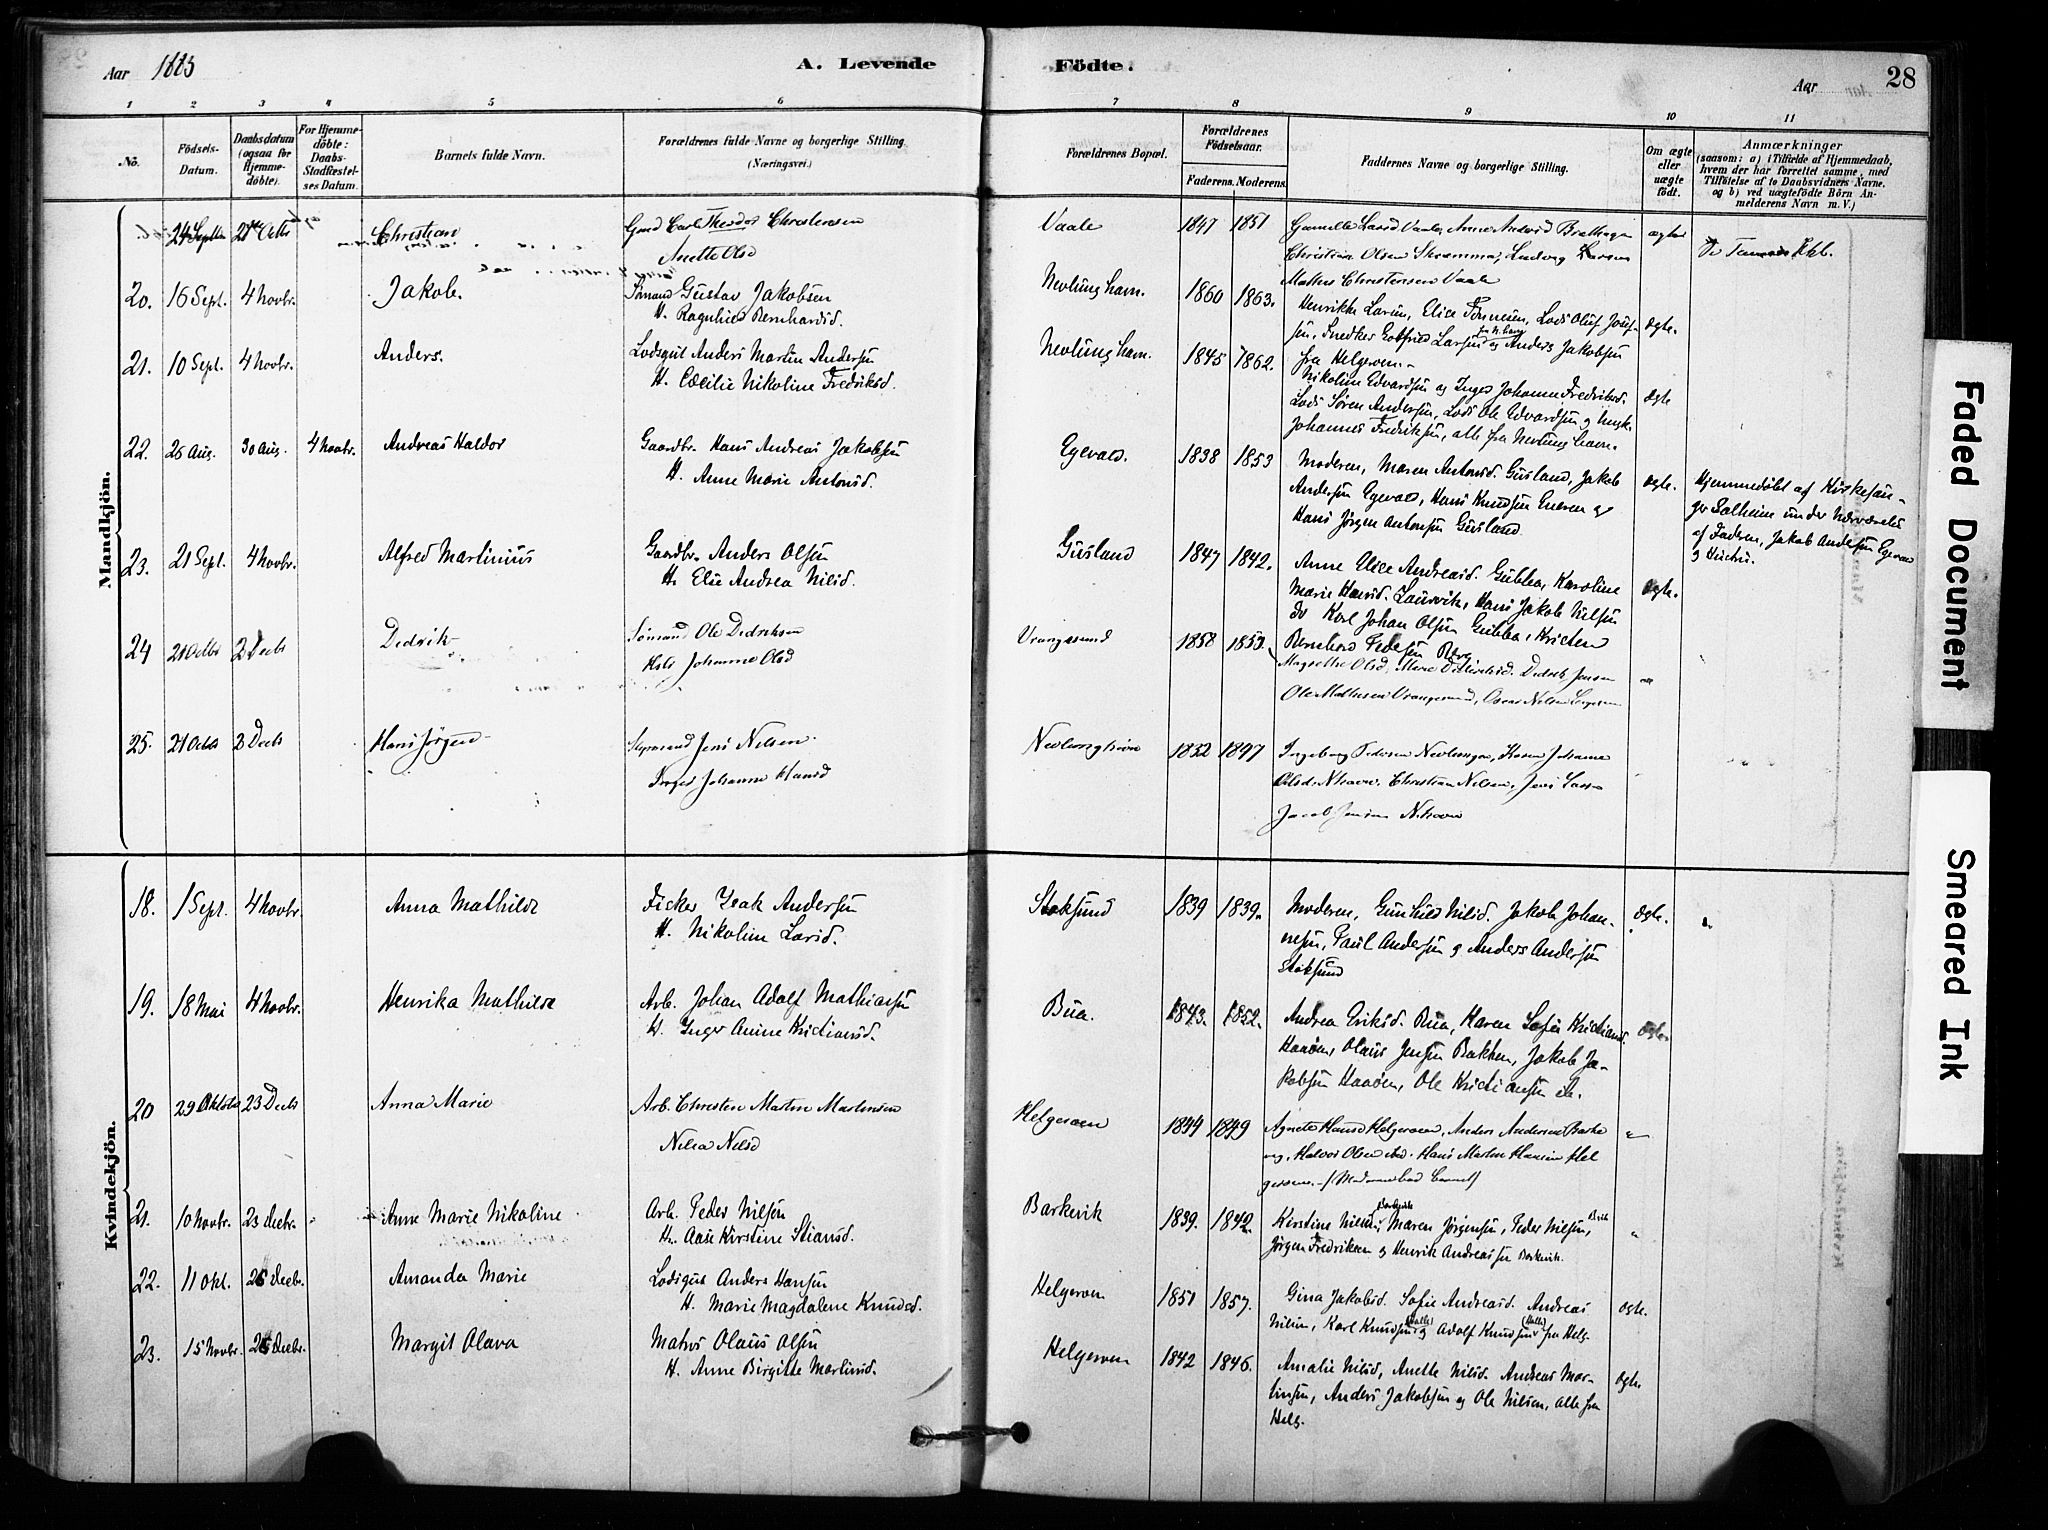 Aar 1883
A. Levende Födte.
Aar
28
1 2 3 4 5 6 7 8 9 10 11
No.
Födsels-Datum.
Daabsdatum (ogsaa for Hjemme-döbte).
For Hjemme-döbte: Daabs-Stadfæstel-ses Datum.
Barnets fulde Navn.
Forældrenes fulde Navne og borgerlige Stilling (Næringsvei.)
Forældrenes Bopæl.
Forældrenes Födselsaar.
Faderens. Moderens.
Faddernes Navne og borgerlige Stilling.
Om ægte eller uægte födt.
Anmærkninger
(saasom: a) i Tilfælde af Hjemmedaab, hvem der har forrettet samme, med Tilföielse af to Daabsvidners Navne. og b) ved uægtefödte Börn An-melderens Navn m. V.)
Mandkjön.
Christian
Gmd Carl Theodor Christensen
Anette Olsd
Vaale 1847 1851
Christian Olsen
Ludvig Larsen
ægte
Mathis Christensen Vaale
20. 16 Sept. 4 Novbr. Jakob.
Sömand Gustav Jakobsen
H. Ragnhild Bernhardsd.
Nevlungham. 1860 1863.
Henrikke Larsen, Elise
Lods Oluf Josef-
sen, Snedker Gotfried Larsen og Anders Jakobsen
fra Helgeroen.
Ægte.
21. 10 Sept. 4 Novbr. Anders.
Lodsgut Anders Martin Andersen
H. Cæcilie Nikoline Fredriksd.
Nevlungham. 1845 1862.
Nikoline Edvardsen og Inger Johanne Fredriksd.
Lods Sören Andersen, Lods Ole Edvardsen og
Johannes Fredriksen, alle fra Nevlunghavn.
Ægte
22. 26 Aug. 30 Aug. 4 Novbr. Andreas Haldor
Gaardbr. Hans Andreas Jakobsen
H. Anne Marie Antonsd.
Egevald. 1838 1853
Moderen, Maren Antonsd. Gusland, Jakob
Andersen Egevald, Hans Knudsen Eneren og
Hans Jörgen Antonsen Gusland.
Ægte.
Hjemmedöbt af Kirkesan-
ger Solheim under Nærværelse
af Faderen, Jakob Andersen Egevald
og Hustru.
23. 21 Sept. 4 Novbr. Alfred Martinius
Gaardbr. Anders Olsen
H. Elie Andrea Nilsd.
Gusland 1847 1842.
Anne Elise Andreasd. Gubba, Karoline
Marie Hansd. Laurvik, Hans Jakob Nilsen
do Karl Johan Olsen Gubba, Kristen
Bernhard Pedersen
Ægte.
24 21 Octbr 2 Decb Dedrik
Sömand Ole Dedriksen
Johanne Olsd
Vrangesund 1858 1853.
Dedrik Jensen
Ole Mathisen Vrangesund, Oscar Nilsen
25. 21 Octb 2 Decb Hans Jörgen
Styrmand Jens Nilsen
Inger Johanne Hansd
Nevlunghavn 1852 1847
Ingeborg Pedersen Nevlunghavn, Karen Johanne
Olsd. Nhavn. Christian Nilsen, Jens
Jacob Jensen Nhavn
Kvindekjön.
18. 1 Sept. 4 Novbr Anna Mathilde
Fisker Isak Andersen
H. Nikoline Larsd.
Stoksund 1839 1839.
Moderen, Gunhild Nilsd. Jakob Johan-
nesen, Paul Andersen og Anders Andersen
Stoksund
Ægte.
19. 18 Mai 4 Novbr. Henrika Mathilde
Arb. Johan Adolf Mathiasen
H. Inger Amine Kristiansd.
Bua. 1843. 1852.
Andrea Eriksd. Bua, Karen Sofie Kristiansd.
Haaöen, Olaus Jensen Bakken, Jakob Ja-
kobsen Haaöen, Ole Kristiansen ib.
Ægte
20 29 Oktobr 23 Decb Anna Marie
Arb. Christen Martin Martinsen
Nilia Nilsd
Helgeroen 1844 1849
Agnete Hansd Helgeroen, Anders Andersen Barke
vig, Halvor Olsen ibd. Hans Martin Hansen Hel
geroen.
21. 10 Novbr. 23 Decbr. Anne Marie Nikoline
Arb. Peder Nilsen
H. Aase Kirstine Stiansd.
Barkevik 1839. 1842
Kirstine Nilsd. Barkevik, Maren Jörgensen, Peder Nilsen, Bvik
Jörgen Fredriksen og Henrik Andreassen Barkevik.
22. 11 Okt. 26 Decbr. Amanda Marie
Lodsgut Anders Hansen
H. Marie Magdalene Knudsd.
Helgeroen 1851 1857.
Gina Jakobsd. Sofie Andreasd. Andreas
Nilsen, Karl Knudsen (Halle) og Adolf Knudsen (Halle) fra Helg.
Ægte.
23. 15 Novbr. 26 Decbr. Margit Olava
Matros Olaus Olsen
H. Anne Birgitte Martinsd.
Helgeroen 1842 1846.
Amalie Nilsd, Anette Nilsd. Andreas Mar-
tinsen, Anders Jakobsen og Ole Nilsen, alle fra
Helg.
Ægte.
Faded Document
Smeared Ink